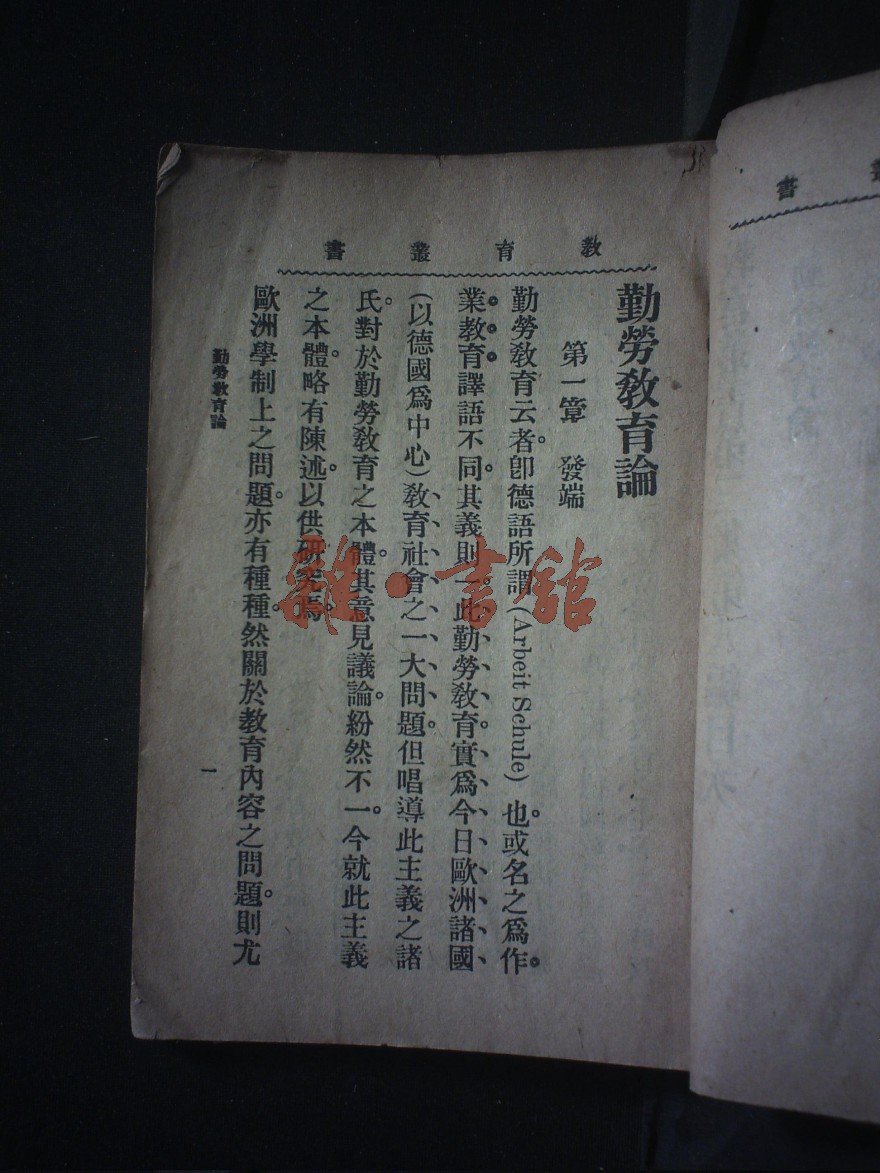 教育叢書
勤勞教育論
第一章 發端
勤勞教育云者。卽德語所謂(Arbeit Schule)也。或名之爲作
業教育譯語不同。其義則一。此勤勞教育。實爲今日歐洲諸國
(以德國爲中心)教育社會之一大問題。但唱導此主義之諸
氏。對於勤勞教育之本體。其意見議論。紛然不一。今就此主義
之本體。略有陳述。以供研究焉。
歐洲學制上之問題。亦有種種然關於教育內容之問題。則尤
勤勞教育論
一
雜·書館
書